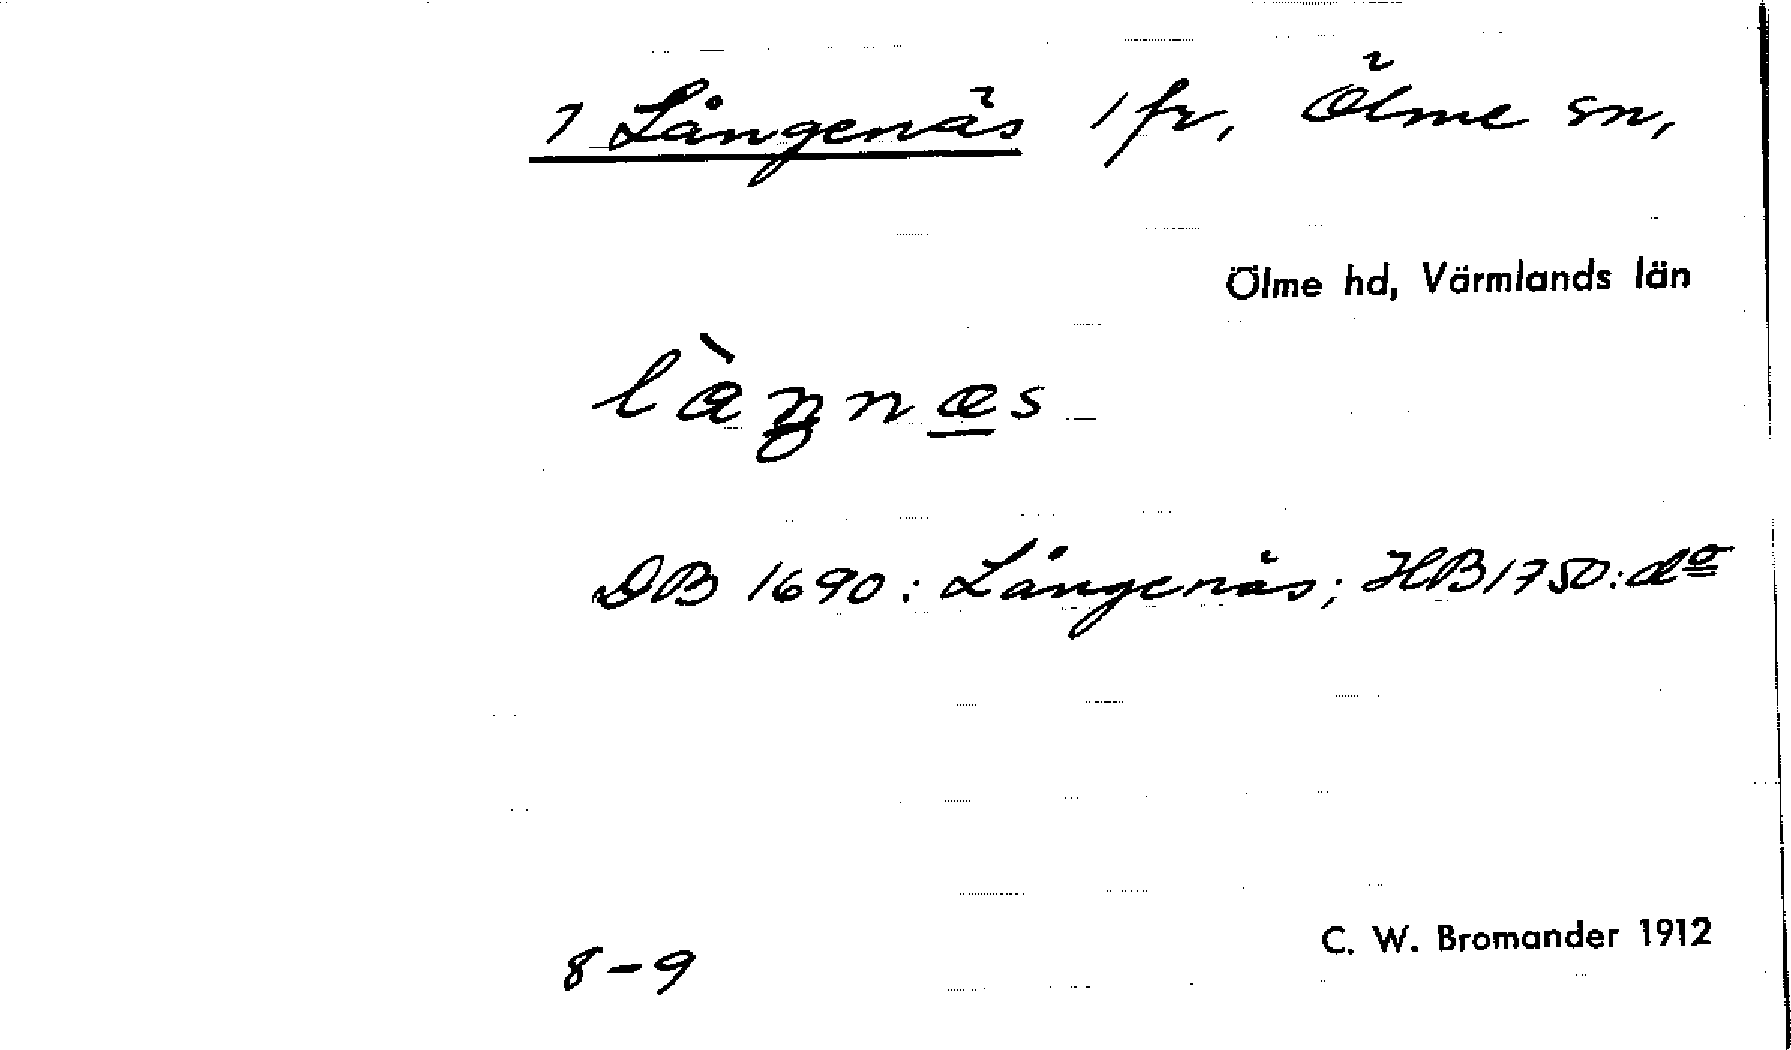 1 Långenäs 1 fr, Ölme sn,
Ölme hd, Värmlands län
làŋnæs
DB 1690: Långenäs; HB 1750: do
C. W. Bromander 1912
8-9